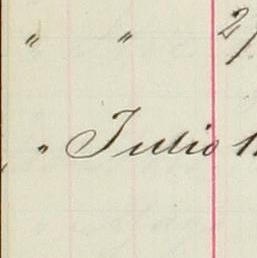 " " 2
" Julio 1